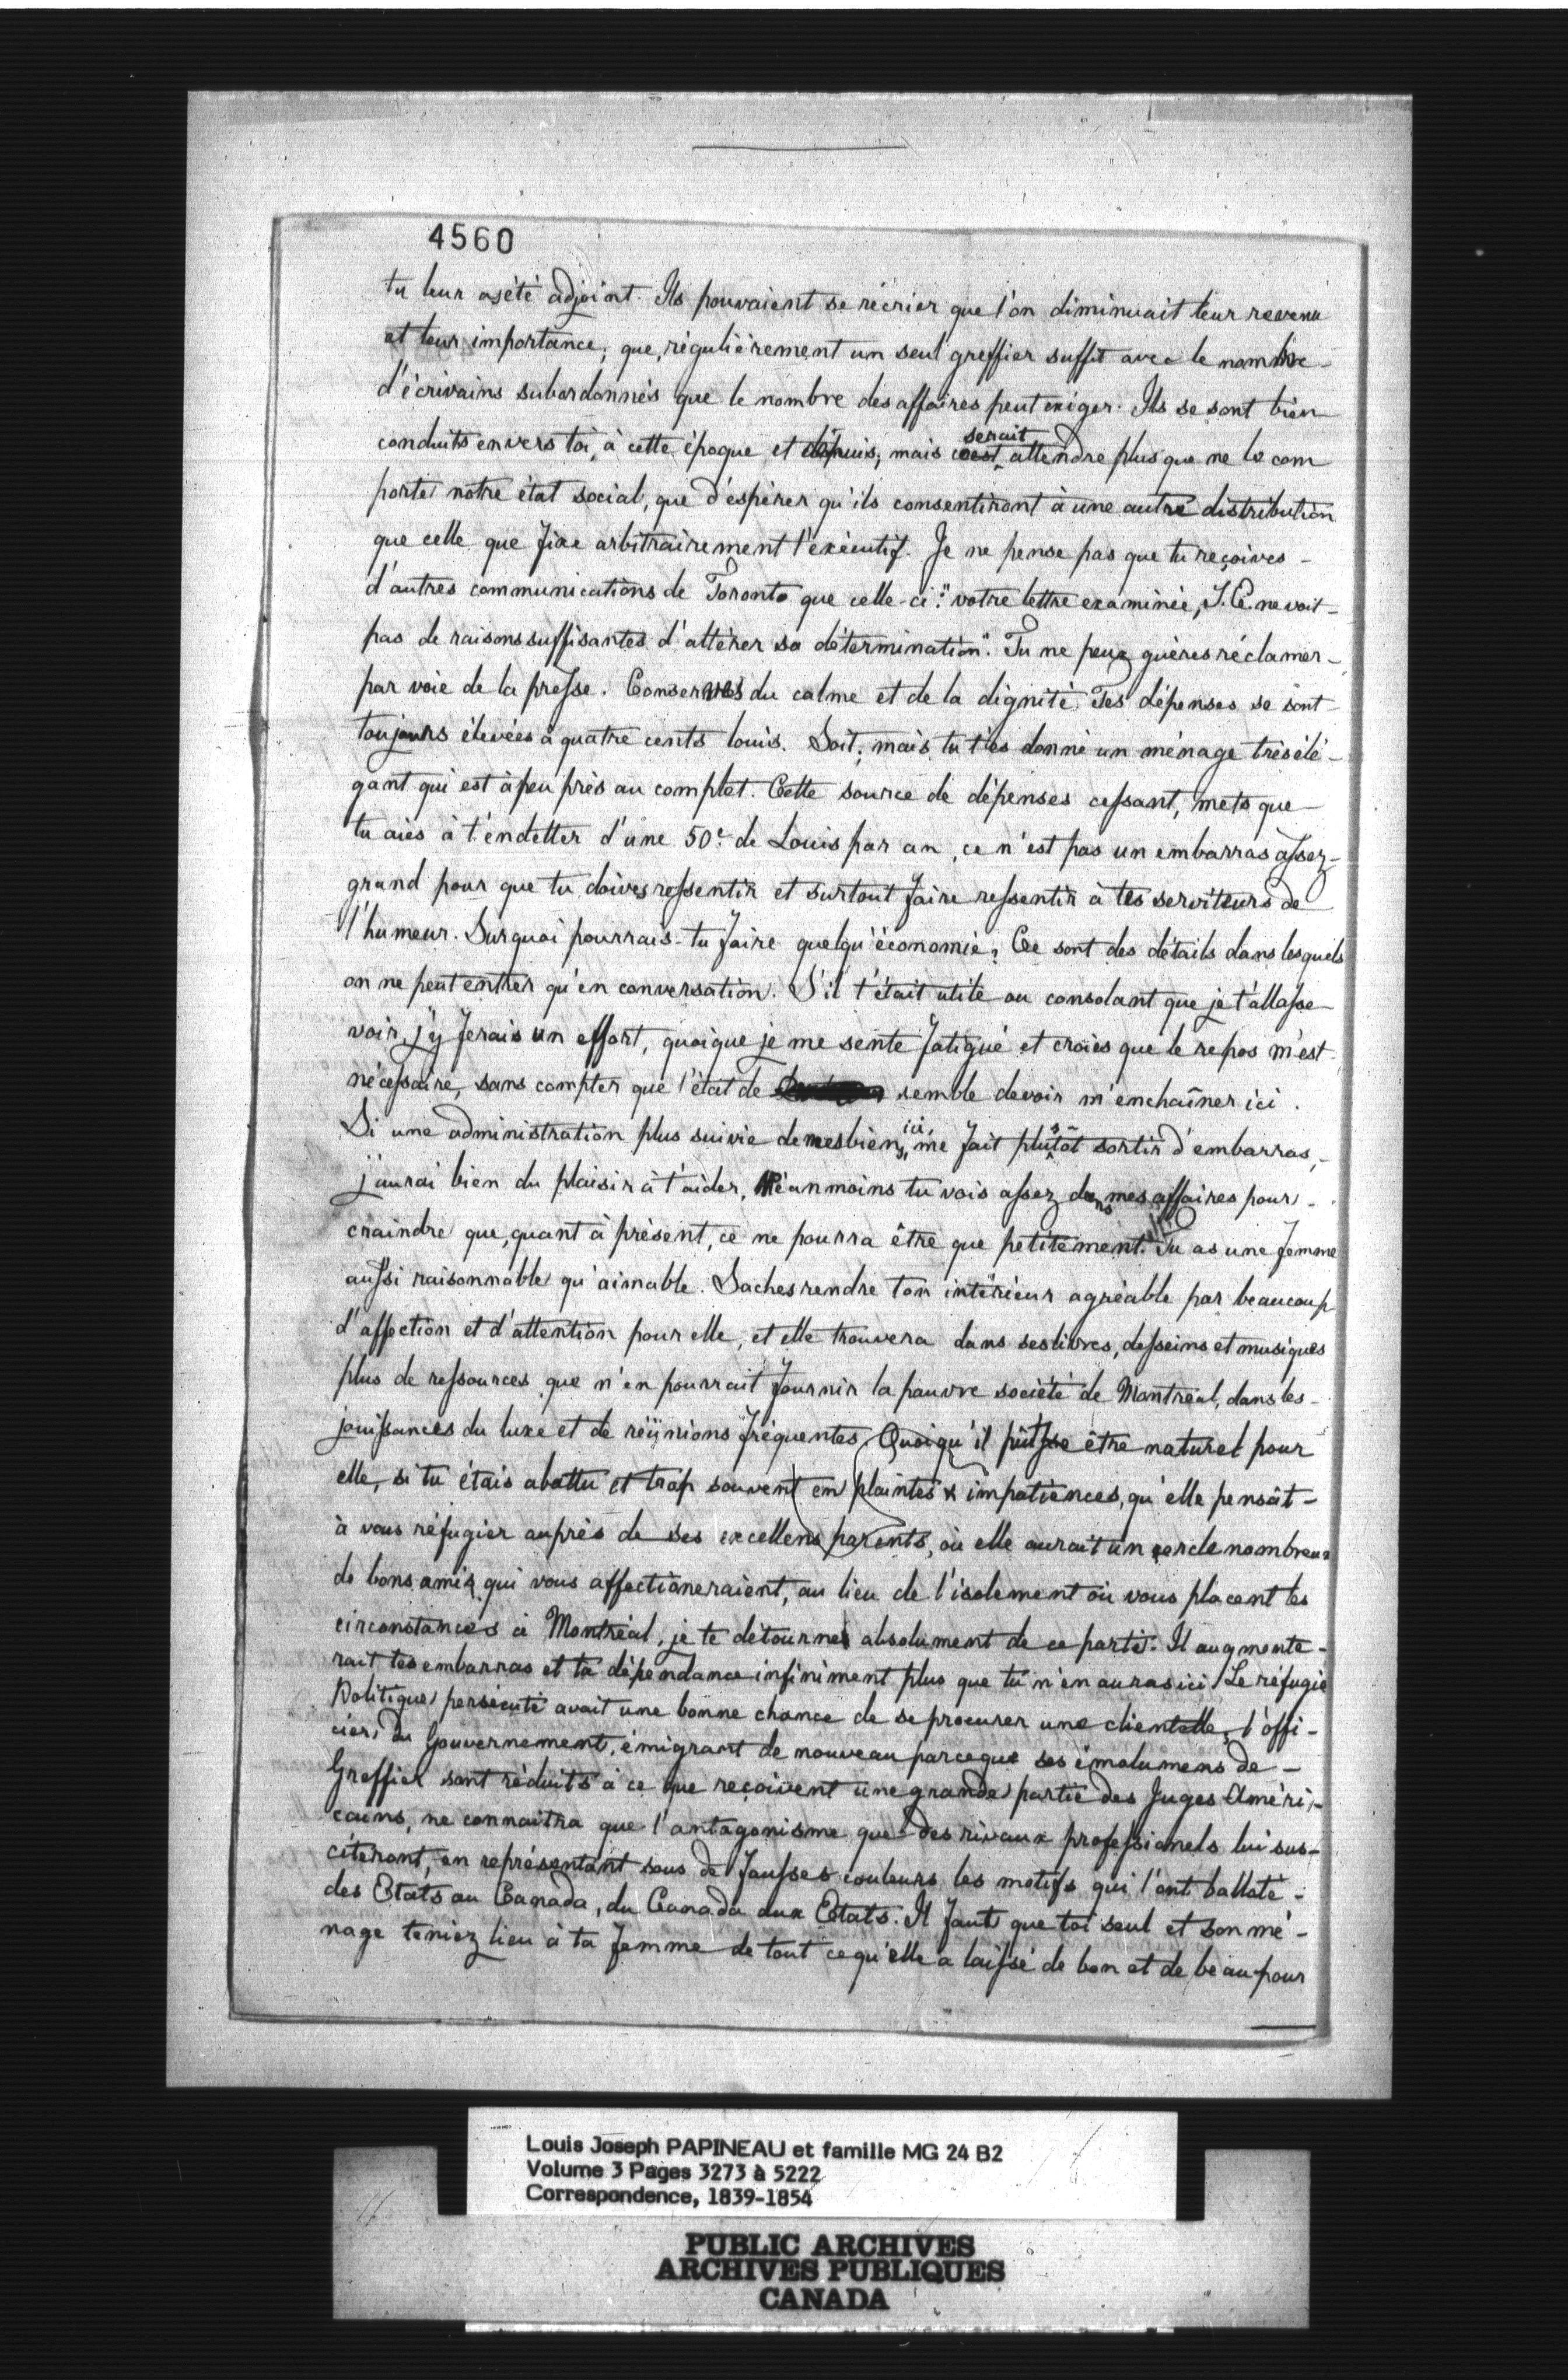 4560
tu leur as été adjoint. Ils pouvaient se récrier que l'on diminuait leur revenu
et leur importance; que, régulièrement un seul greffier suffit avec le nombre
d'écrivains subordonnés que le nombre des affaires peut exiger. Ils se sont bien
conduits envers toi, à cette époque et depuis; mais ce serait attendre plus que ne le com
porte notre état social, que d'espérer qu'ils consentiront à une autre distribution
que celle que fixe arbitrairement l'exécutif. Je ne pense pas que tu reçoives
d'autres communications de Toronto que celle-ci: "votre lettre examinée, S. E. ne voit
pas de raisons suffisantes d'altérer sa détermination". Tu ne peux guères réclamer
par voie de la presse. Conserves du calme et de la dignité. Tes dépenses se sont
toujours élevées à quatre cents louis. Soit; mais tu t'es donné un ménage très élé-
gant qui est à peu près au complet. Cette source de dépenses cessant, mets que
tu aies à t'endetter d'une 50e de Louis par an, ce n'est pas un embarras assez
grand pour que tu doives ressentir et surtout faire ressentir à tes serviteurs de
l'humeur. Sur quoi pourrais-tu faire quelqu'économie? Ce sont des détails dans lesquels
on ne peut entrer qu'en conversation. S'il t'était utile ou consolant que je t'allasse
voir, j'y ferais un effort, quoique je me sente fatigué et croies que le repos m'est
nécessaire, sans compter que l'état de semble devoir m'enchaîner ici.
Si une administration plus suivie de mes biens, ici, me fait plutôt sortir d'embarras,
j'aurai bien du plaisir à t'aider. Néanmoins tu vois assez dans mes affaires pour
craindre que, quant à présent, ce ne pourra être que petitement. Tu as une femme
aussi raisonnable qu'aimable. Saches rendre ton intérieur agréable par beaucoup
d'affection et d'attention pour elle, et elle trouvera dans ses livres, desseins et musiques
plus de ressources que n'en pourrait fournir la pauvre société de Montréal, dans les
jouissances du luxe et de réünions fréquentes. Quoiqu'il pût être naturel pour
elle, si tu étais abattu et trop souvent en plaintes & impatiences, qu'elle pensât
à vous réfugier auprès de ses excellens parents, où elle aurait un cercle nombreux
de bons amis qui vous affectioneraient, au lieu de l'isolement où vous placent les
circonstances à Montréal, je te détourne absolument de ce parti. Il augmente-
rait tes embarras et ta dépendance infiniment plus que tu n'en auras ici. Le réfugié
Politique persécuté avait une bonne chance de se procurer une clientelle, l'offi-
cier du Gouvernement, émigrant de nouveau parceque ses émolumens de
Greffier sont réduits à ce que reçoivent une grande partie des Juges Améri-
cains, ne connaitra que l'antagonisme que des rivaux professionels lui sus-
citeront, en représentant sous de fausses couleurs les motifs qui l'ont balloté
des Etats au Canada, du Canada aux Etats. Il faut que toi seul et son mé-
nage teniez lieu à ta femme de tout ce qu'elle a laissé de bon et de beau pour
Louis Joseph PAPINEAU et famille MG 24 B2
Volume 3 Pages 3273 à 5222
Correspondence, 1839-1854
PUBLIC ARCHIVES
ARCHIVES PUBLIQUES
CANADA